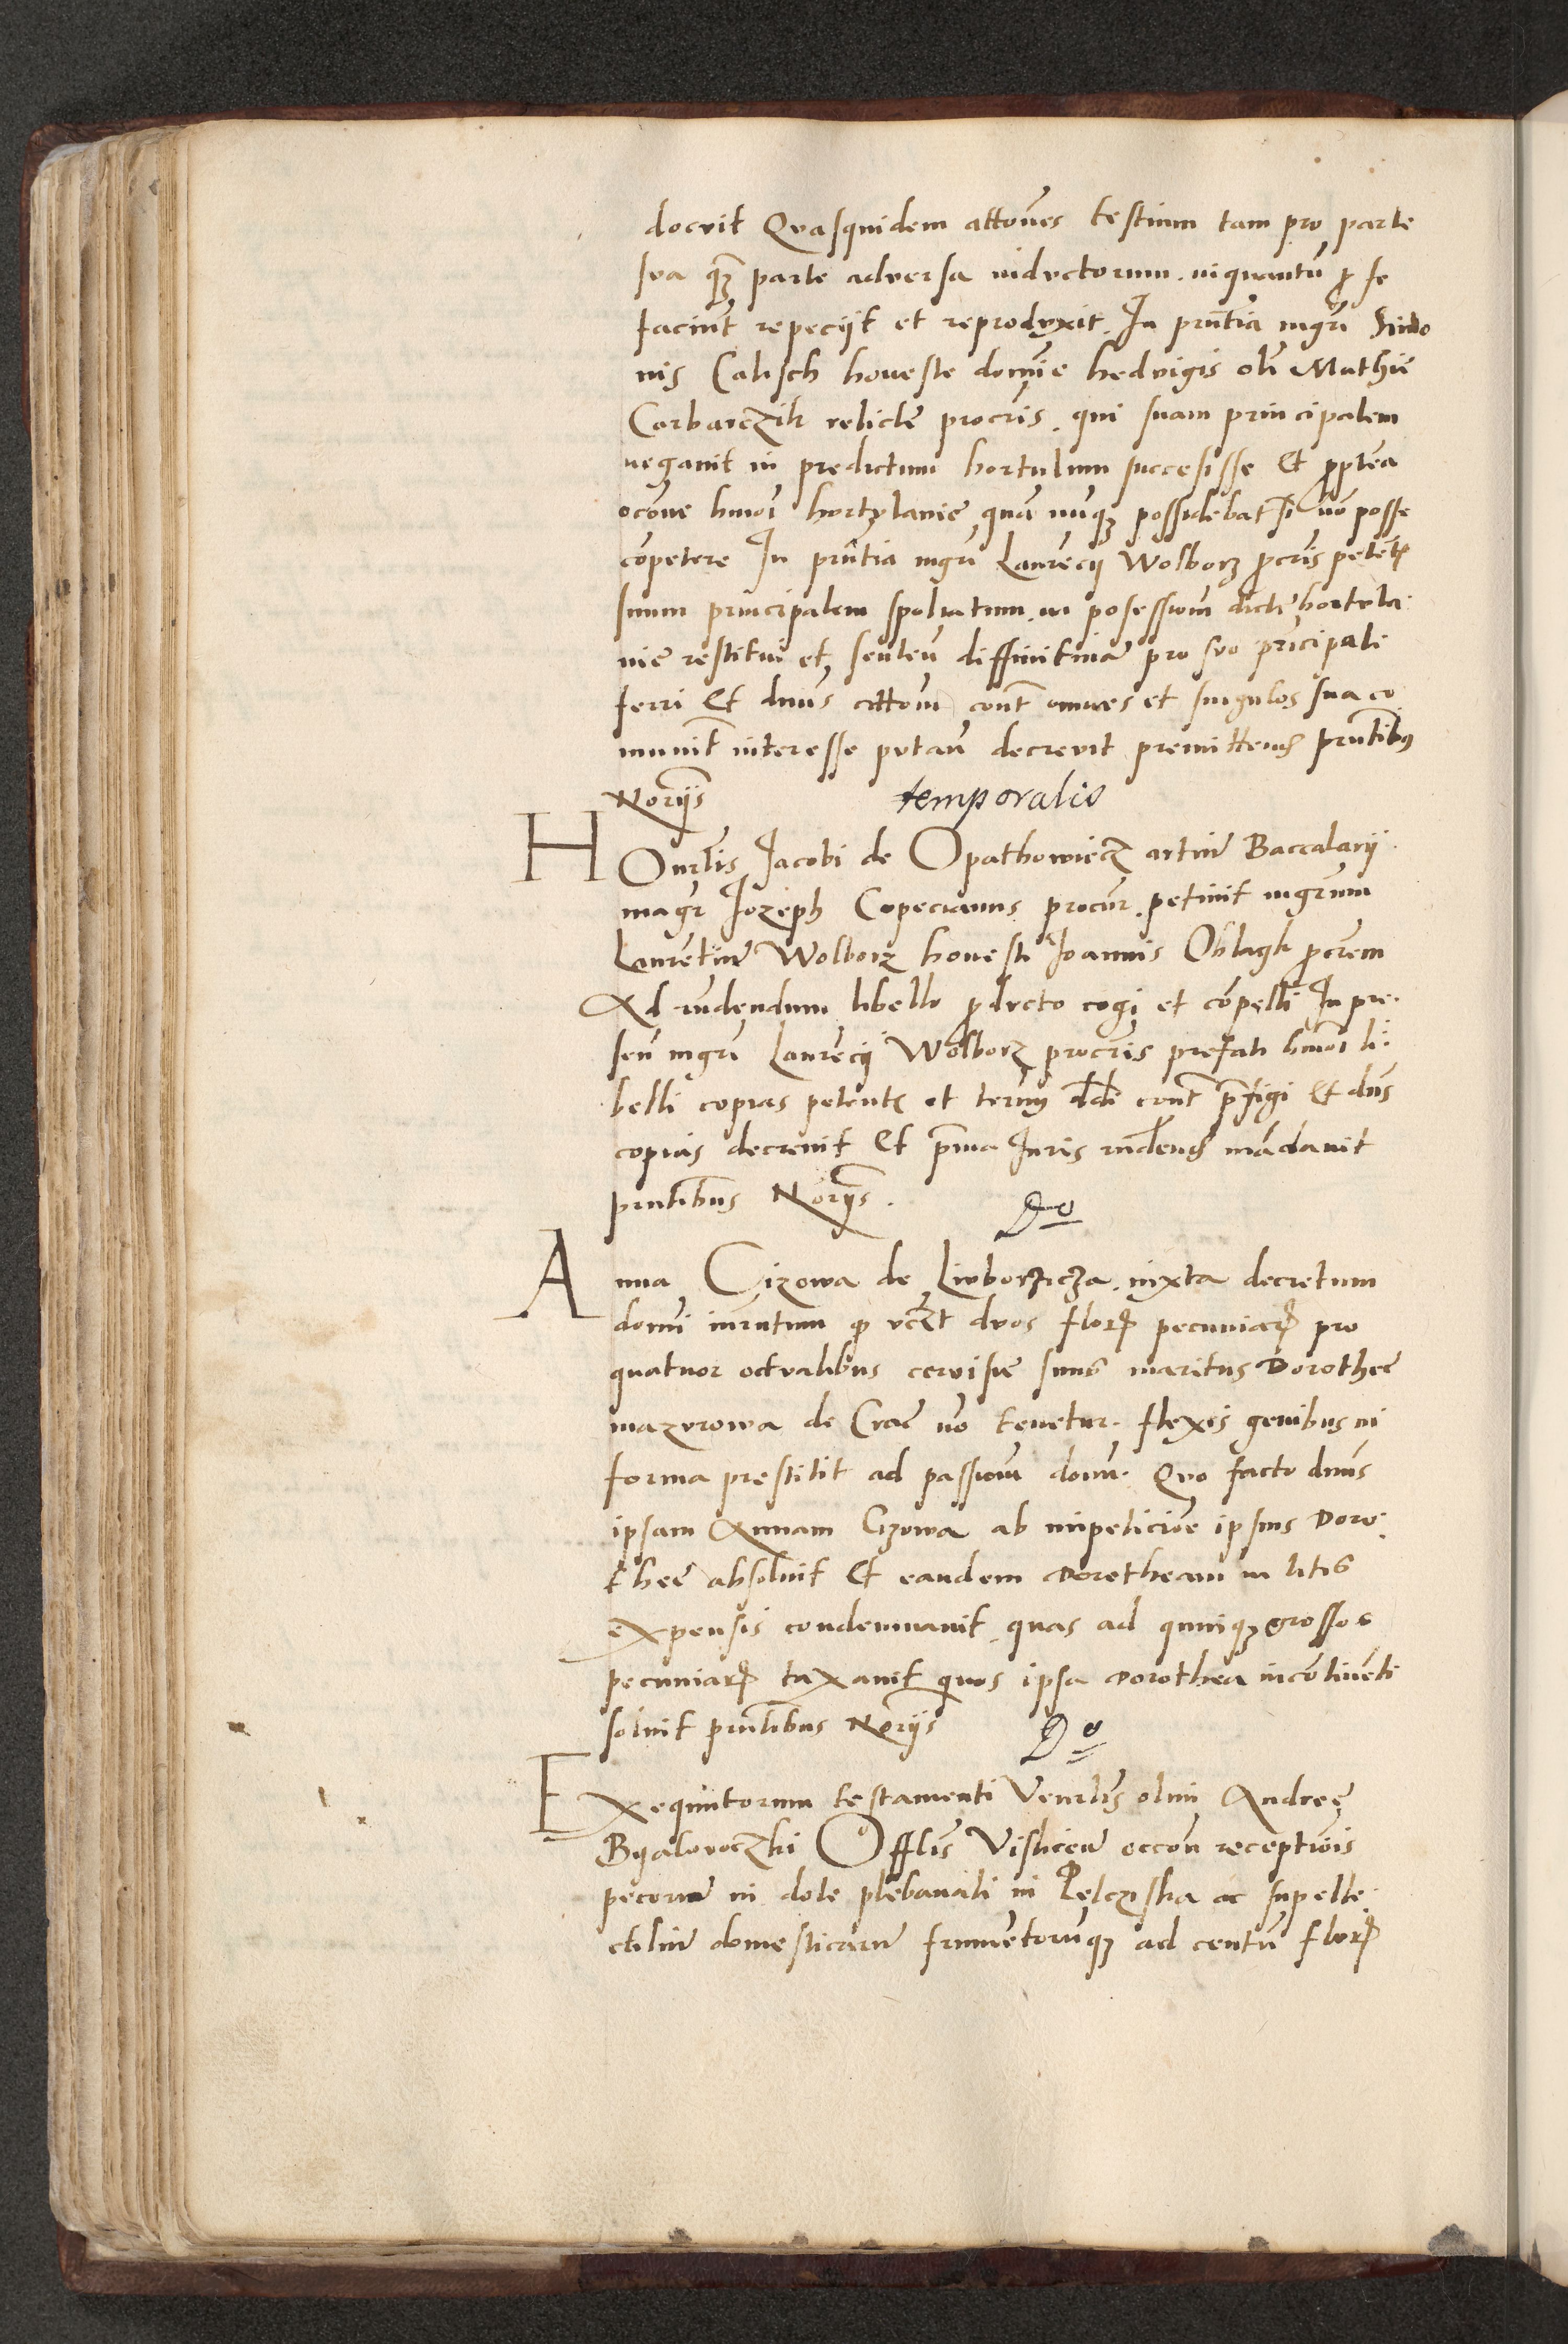 docuit Quasquidem attōnes testium tam pro parte
sua q̄ȝ parte adversa inductorum. inquantū p̄ se
faciūt repeciit et reproduxit. In prn̄tia mgrī Simo
nis Calisch honeste domīe hedvigis olī Mathie
Corbarczik relicte procrīs. qui suam principalem
negavit in predictum hortulum successisse Et pp̄tea
accōne hmōi hortulanie quā nūqȝ possidebat sī nō posse
cōpetere In prn̄tia mgrī Laurēcii Wolborz p̄crīs petētę
suum principalem spoliatum. in posessiōm dicte hortula
nie restitui et sentēm diffinitivā pro suo prīcipali
ferri Et dn̄us attōm cont̄ omnes et singulos sua co
muīt interesse putan̄ decrevit premittend̄ prn̄tibus
Norīis temporalis
HOnrlīs Jacobi de Opathowiecz artiū Baccalarii
magr̄ Jozeph Copecianus procur̄. petivit mgrum
Laurentiū Wolborz honesti Joannis Oblagk p̄crem
Ad rūdendum libello p̄ducto cogi et cōpelli In pre
sen̄ mgrī Laurēcii Wolborz procrīs prefati hmōi li
belli copias petentę et termī ddī cont̄ p̄figi Et dn̄s
copias decrevit Et p̄ma Juris rn̄dend̄ mādavit
prn̄tibus Norīis. Do
Anna Cizowa de Liuborzicza. iuxta decretum
domī iuratum q̄ vcȝt duos florę pecuniarę pro
quatuor octualibus cervisie suus maritus Dorothee
mazurowa de Crac̄ nō tenetur. flexis genibus in
forma prestitit ad passiōm domī. Quo facto dn̄us
ipsam Annam Cizowa ab impeticiōe ipsius Doro
thee absolvit Et eandem Dorotheam in litis
expensis condemnavit. quas ad quinqȝ grossos
pecuniarę taxavit quos ipsa Dorothea incōtinēti
solvit prn̄tibus Norīis Do
Exequutorum testamenti Venrlīs olim Andreę
Byalovoczki Offlīs Vislicen̄ occōn receptiōis
pecorū in dote plebanali in Pelcziska ac supelle
ctiliū domesticarū frumētorūqȝ ad centū florę